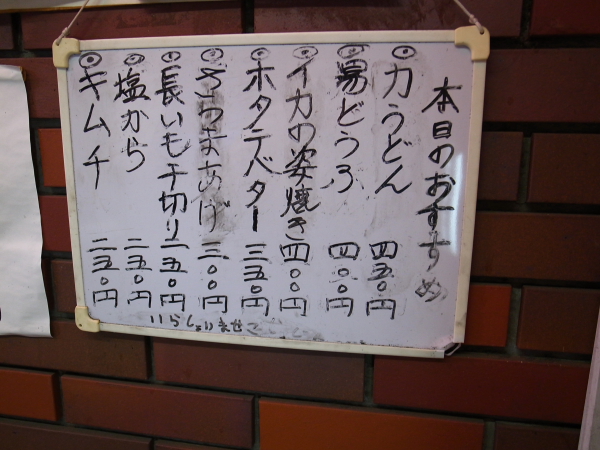 本日のおすすめ
◎力うどん 四五〇円
◎湯どうふ 四〇〇円
◎イカの姿焼き 四〇〇円
◎ホタテバター 三五〇円
◎さつまあげ 三〇〇円
◎長いも千切り 二五〇円
◎塩から 二五〇円
◎キムチ 二五〇円
いらしゃいませ